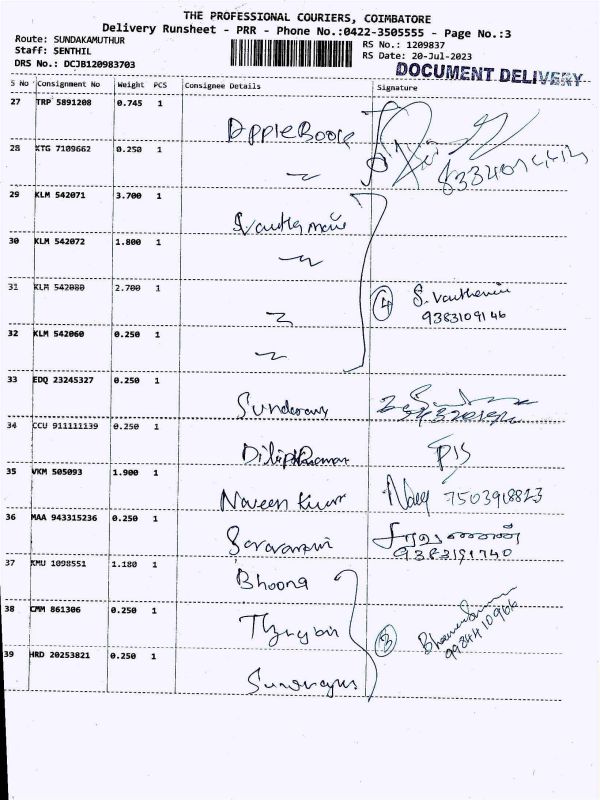 THE PROFESSIONAL COURIERS, COIMBATORE
Delivery Runsheet - PRR - Phone No.:0422-3505555 - Page No.:3
Route: SUNDAKAMUTHUR
Staff: SENTHIL
DRS No.: DCJB120983703
RS No.: 1209837
RS Date: 20-Jul-2023
DOCUMENT DELIVERY
S No Consignment No Weight PCS Consignee Details Signature
27 TRP 5891208 0.745 1 Apple Book
28 KTG 7109662 0.250 1
29 KLM 542071 3.700 1
30 KLM 542072 1.800 1
31 KLM 542080 2.700 1 4
9383109146
32 KLM 542060 0.250 1
33 EDQ 23245327 0.250 1
34 CCU 911111139 0.250 1
35 VKM 505093 1.900 1 Naveen Kumar 7503918823
36 MAA 943315236 0.250 1 சரவணன்
9383191740
37 KMU 1098551 1.180 1
38 CMM 861306 0.250 1 3
9984410966
39 HRD 20253821 0.250 1